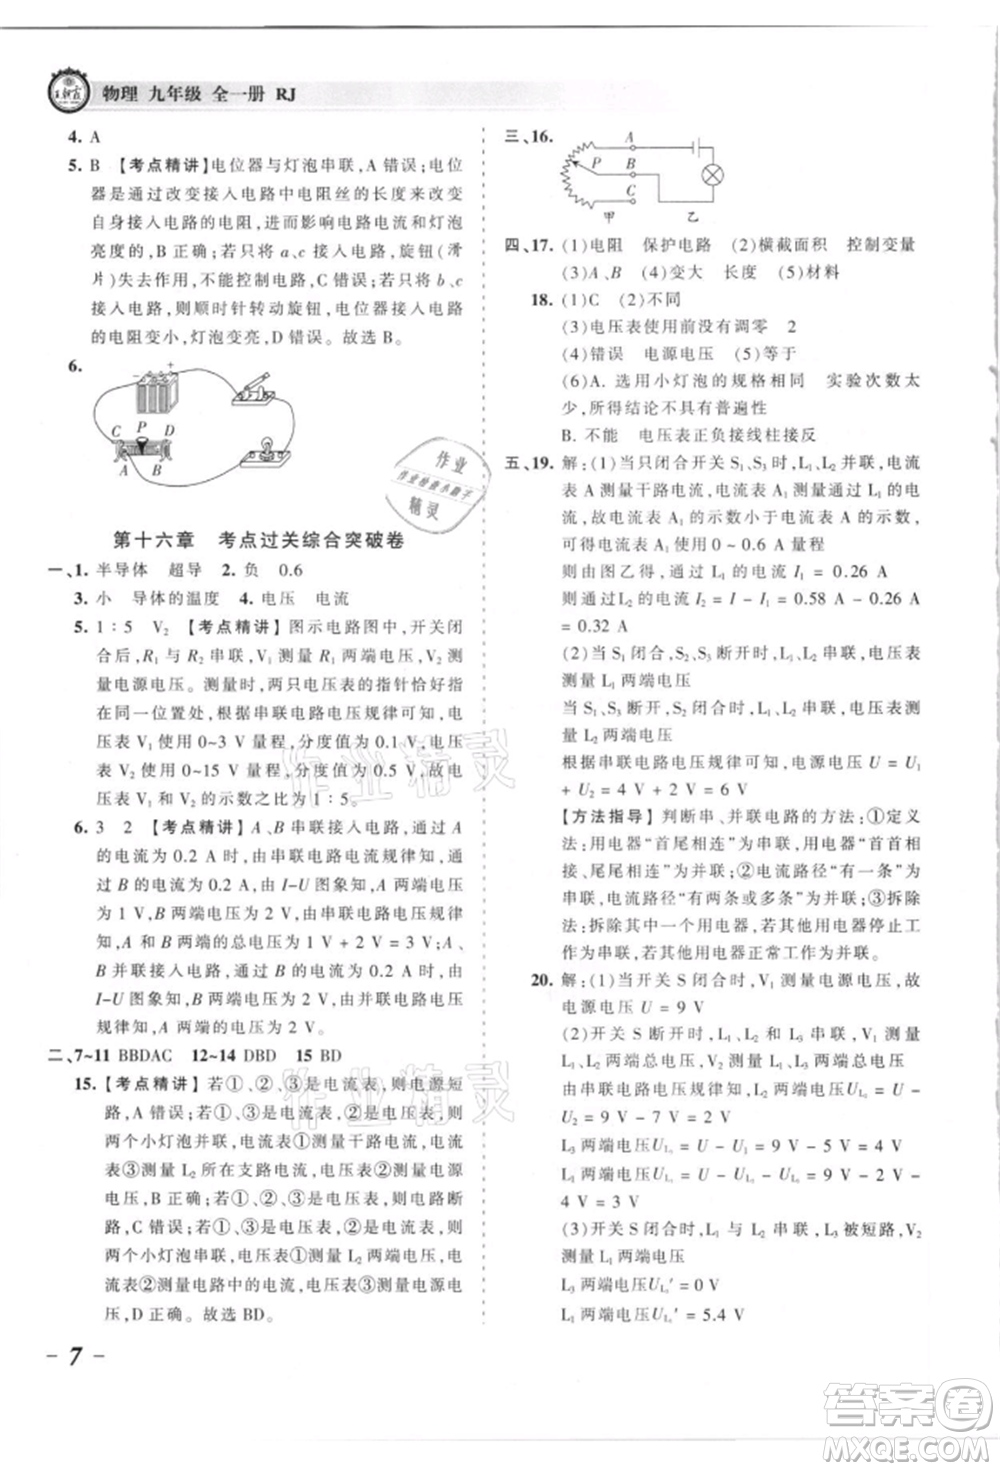 王朝霞
物理 九年级 全一册 RJ
4. A
5. B 【考点精讲】电位器与灯泡串联,A 错误;电位
器是通过改变接入电路中电阻丝的长度来改变
自身接入电路的电阻,进而影响电路电流和灯泡
亮度的,B 正确;若只将 a、c 接入电路,旋钮(滑
片)失去作用,不能控制电路,C 错误;只将 b、c
接入电路,则顺时针转动旋钮,电位器接入电路
的电阻变小,灯泡变亮,D 错误。故选 B。
6.
- +
C P D
A B
第十六章 考点过关综合突破卷
一、1. 半导体 超导 2. 负 0.6
3. 小 导体的温度 4. 电压 电流
5. 1∶5 V₂ 【考点精讲】图示电路图中,开关闭
合后,R₁ 与 R₂ 串联,V₁ 测量 R₁ 两端电压,V₂ 测
量电源电压。测量时,两只电压表的指针恰好
在同一位置处,根据串联电路电压规律可知,电
压表 V₁ 使用 0~3 V 量程,分度值为 0.1 V,电
压表 V₂ 使用 0~15 V 量程,分度值为 0.5 V,故
电压表 V₁、V₂ 的示数之比为 1∶5。
6. 3 2 【考点精讲】A、B 串联接入电路,通过 A
的电流为 0.2 A 时,由串联电路电流规律知,通
过 B 的电流为 0.2 A,由 I-U 图象知,A 两端电压
为 1 V,B 两端电压为 2 V,由串联电路电压规律
知,A 和 B 两端的总电压为 1 V + 2 V = 3 V;A、
B 并联接入电路,通过 A 的电流为 0.3 A 时,由
I-U 图象知,A、B 两端电压为 2 V,由并联电路电压
规律知,A 两端的电压为 2 V。
二、7~11 BBDAC 12~14 DBD 15 BD
15. 【考点精讲】若①、②、③是电流表,则电源短
路,A 错误;若①、③是电流表,②是电压表,则
两个小灯泡并联,电流表①测量干路电流,电流
表③测量 L₂ 所在支路电流,电压表②测量电源
电压,B 正确;若①、②、③是电压表,则电路断
路,C 错误;若①、③是电压表,②是电流表,则
两个小灯泡串联,电压表①测量 L₂ 两端电压,电
流表②测量电路中的电流,电压表③测量电源电
压,D 正确。故选 BD。
三、16.
A
P B
C
甲 乙
四、17. (1)电阻 保护电路 (2)横截面积 控制变量
(3)A、B (4)变大 长度 (5)材料
18. (1)C (2)不同
(3)电压表使用前没有调零 2
(4)错误 电源电压 (5)等于
(6)A. 选用小灯泡的规格相同 实验次数太
少,所得结论不具有普遍性
B. 不能 电压表正负接线柱接反
五、19. 解:(1)当只闭合开关 S₁、S₃ 时,L₁、L₂ 并联,电流
表 A 测量干路电流,电流表 A₁ 测量通过 L₁ 的电
流,故电流表 A₁ 的示数小于电流表 A 的示数,
可得电流表 A₁ 使用 0~0.6 A 量程
则由图乙得,通过 L₁ 的电流 I₁ = 0.26 A
则通过L₂ 的电流 I₂ = I − I₁ = 0.58 A − 0.26 A
= 0.32 A
(2)当 S₁ 闭合,S₂、S₃ 断开时,L₁、L₂ 串联,电压表
测量 L₁ 两端电压
当 S₂ 闭合,S₁、S₃ 断开时,L₁、L₂ 串联,电压表
测量 L₂ 两端电压
根据串联电路电压规律可知,电源电压 U = U₁
+ U₂ = 4 V + 2 V = 6 V
【方法指导】判断串、并联电路的方法:①定义
法:用电器“首尾相连”为串联,用电器“首首相
接、尾尾相连”为并联;②电流路径“有一条”为
串联,电流路径“有两条或多条”为并联;③拆除
法:拆除其中一个用电器,其他用电器停止工
作为串联,其他用电器正常工作为并联。
20. 解:(1)当开关 S 闭合时,V₁ 测量电源电压,故
电源电压 U = 9 V
(2)开关 S 断开时,L₁、L₂ 和 L₃ 串联,V₁ 测量
L₁、L₂ 两端总电压,V₂ 测量 L₂、L₃ 两端总电压
由串联电路电压规律可知,L₃ 两端电压U_L₃ =
U − U₁ = 9 V − 7 V = 2 V
L₁ 两端电压U_L₁ = U − U₂ = 9 V − 5 V = 4 V
L₂ 两端电压U_L₂ = U − U_L₃ − U_L₁ = 9 V − 2 V −
4 V = 3 V
(3)开关 S 闭合时,L₁ 与 L₂ 串联,L₃ 被短路,V₂
测量 L₂ 两端电压
L₃ 两端电压U_L₃′ = 0 V
L₁ 两端电压U_L₁′ = 5.4 V
- 7 -
作业
作业检查小助手
精灵
作业精灵
作业精灵
答案圈
MXQE.COM